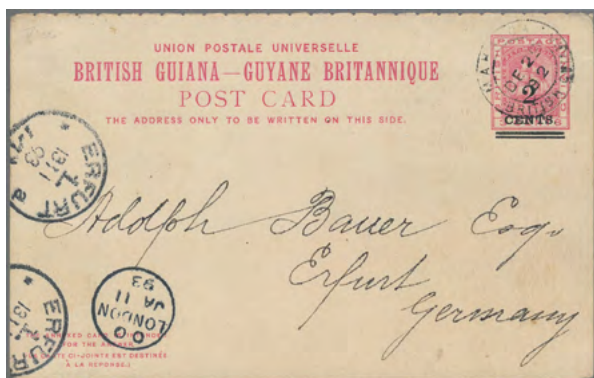 UNION POSTALE UNIVERSELLE
BRITISH GUIANA—GUYANE BRITANNIQUE
POST CARD
THE ADDRESS ONLY TO BE WRITTEN ON THIS SIDE.
POSTAGE
BRITISH
DE 2
92
2
CENTS.
ERFURT
1
13/1
93
a
Adolph Bauer Esq.
Erfurt
Germany
ERFURT
1
13/1
LONDON
JA 11
93
CARD
FOR THE
CI-JOINTE EST DESTINÉE
À LA RÉPONSE.)